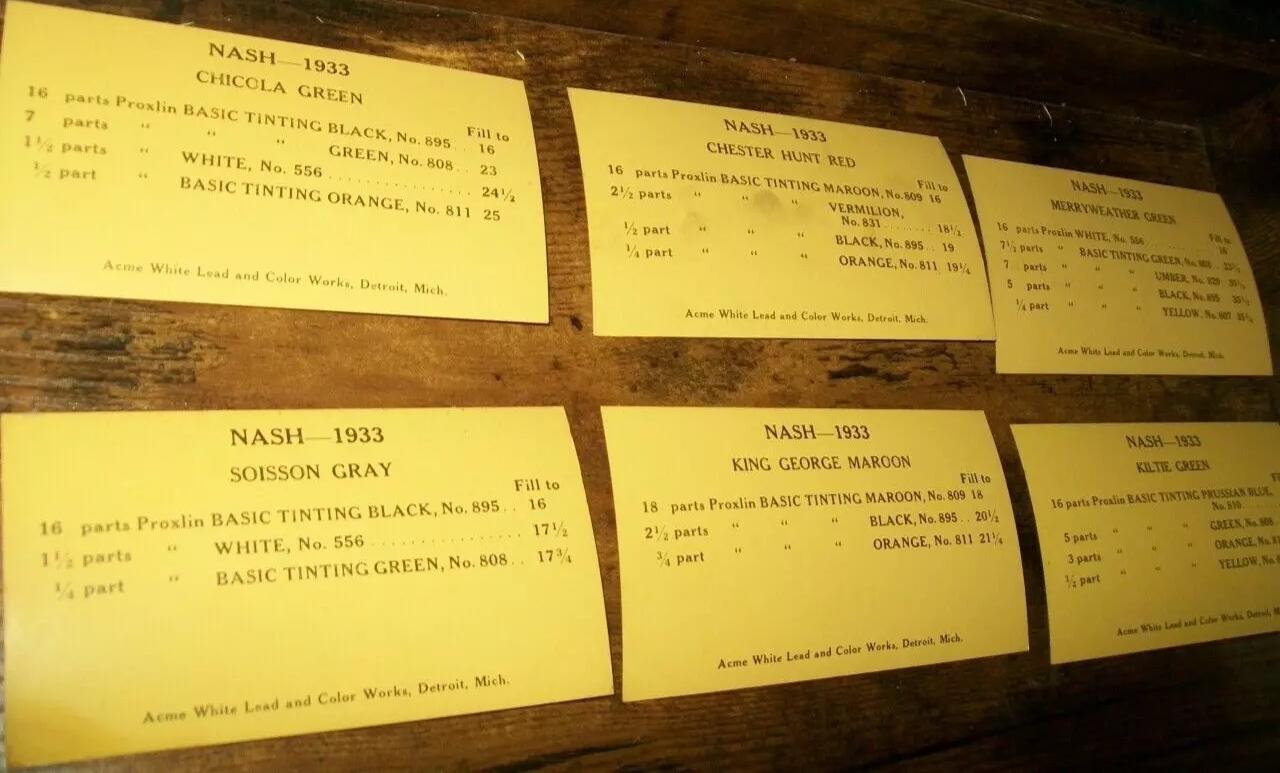 NASH—1933
CHICOLA GREEN
Fill to
16 parts Proxlin BASIC TINTING BLACK, No. 895 . . 16
7 parts “ “ “ GREEN, No. 808 . . 23
1½ parts “ WHITE, No. 556 . . . . . . . . . . . . . . . . 24½
½ part “ BASIC TINTING ORANGE, No. 811 25
Acme White Lead and Color Works, Detroit, Mich.
NASH—1933
CHESTER HUNT RED
Fill to
16 parts Proxlin BASIC TINTING MAROON, No. 809 16
2½ parts “ “ “ VERMILION,
No. 831 . . . . . . . . 18½
½ part “ “ “ BLACK, No. 895 . . 19
¼ part “ “ “ ORANGE, No. 811 19¼
Acme White Lead and Color Works, Detroit, Mich.
NASH—1933
MERRYWEATHER GREEN
Fill to
16 parts Proxlin WHITE, No. 556 . . . . . . . . . . . . 16
7½ parts “ BASIC TINTING GREEN, No. 808 . . 23½
7 parts “ “ “ UMBER, No.
5 parts “ “ “ BLACK, No. 895 35½
¼ part “ “ “ YELLOW, No. 807
Acme White Lead and Color Works, Detroit, Mich.
NASH—1933
SOISSON GRAY
Fill to
16 parts Proxlin BASIC TINTING BLACK, No. 895 . . 16
1½ parts “ WHITE, No. 556 . . . . . . . . . . . . . . . . 17½
¼ part “ BASIC TINTING GREEN, No. 808 . . 17¾
Acme White Lead and Color Works, Detroit, Mich.
NASH—1933
KING GEORGE MAROON
Fill to
18 parts Proxlin BASIC TINTING MAROON, No. 809 18
2½ parts “ “ “ BLACK, No. 895 . . 20½
¾ part “ “ “ ORANGE, No. 811 21¼
Acme White Lead and Color Works, Detroit, Mich.
NASH—1933
KILTIE GREEN
16 parts Proxlin BASIC TINTING PRUSSIAN BLUE,
No. 810 . . . . .
5 parts “ “ “ GREEN, No. 808
3 parts “ “ “ ORANGE, No.
½ part “ “ “ YELLOW, No.
Acme White Lead and Color Works, Detroit,